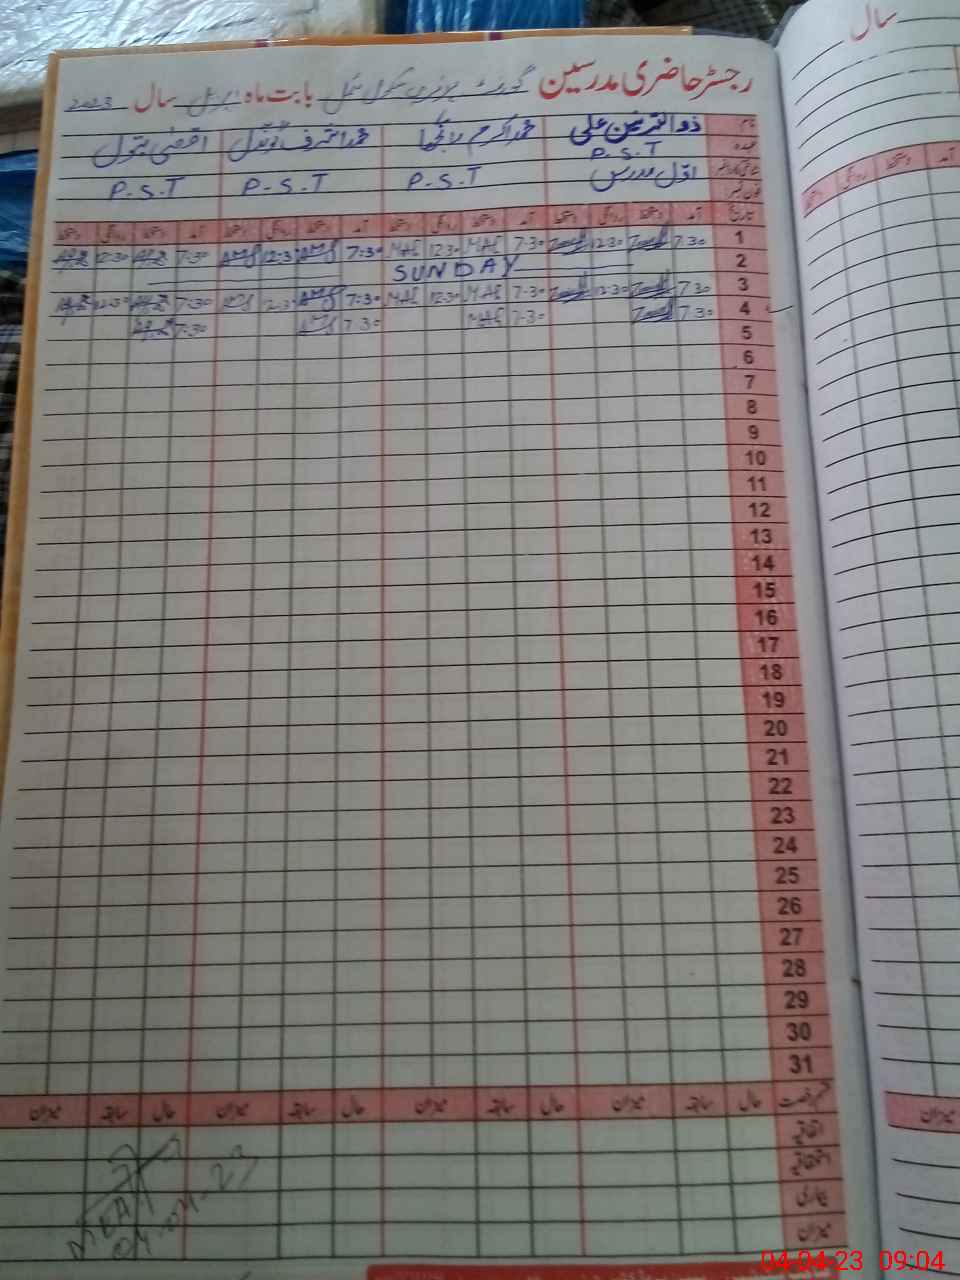 رجسٹر حاضری مدرسین گورنمنٹ بابت ماہ اپریل سال 2023
سال
نام ذوالقرنین علی محمد اکرم رانجھا محمد اشرف گوندل اقصیٰ بتول
عہدہ P.S.T
اوّل مدرس P.S.T P.S.T P.S.T
تاریخ آمد دستخط روانگی دستخط آمد دستخط روانگی دستخط آمد دستخط روانگی دستخط آمد دستخط روانگی دستخط
آمد دستخط روانگی دستخط
1 7:30 12:30 7:30 MAR 12:30 MAR 7:30 12:30 7:30 12:30
2 SUNDAY
3 7:30 12:30 7:30 MAR 12:30 MAR 7:30 12:30 7:30 12:30
4 7:30 7:30 MAR 7:30 7:30
5
6
7
8
9
10
11
12
13
14
15
16
17
18
19
20
21
22
23
24
25
26
27
28
29
30
31
قسم رخصت حال سابقہ میزان حال سابقہ میزان حال سابقہ میزان حال سابقہ میزان
میزان
اتفاقیہ
استحقاقیہ
بیماری
میزان
MEA
04-04-23
04-04-23 09:04